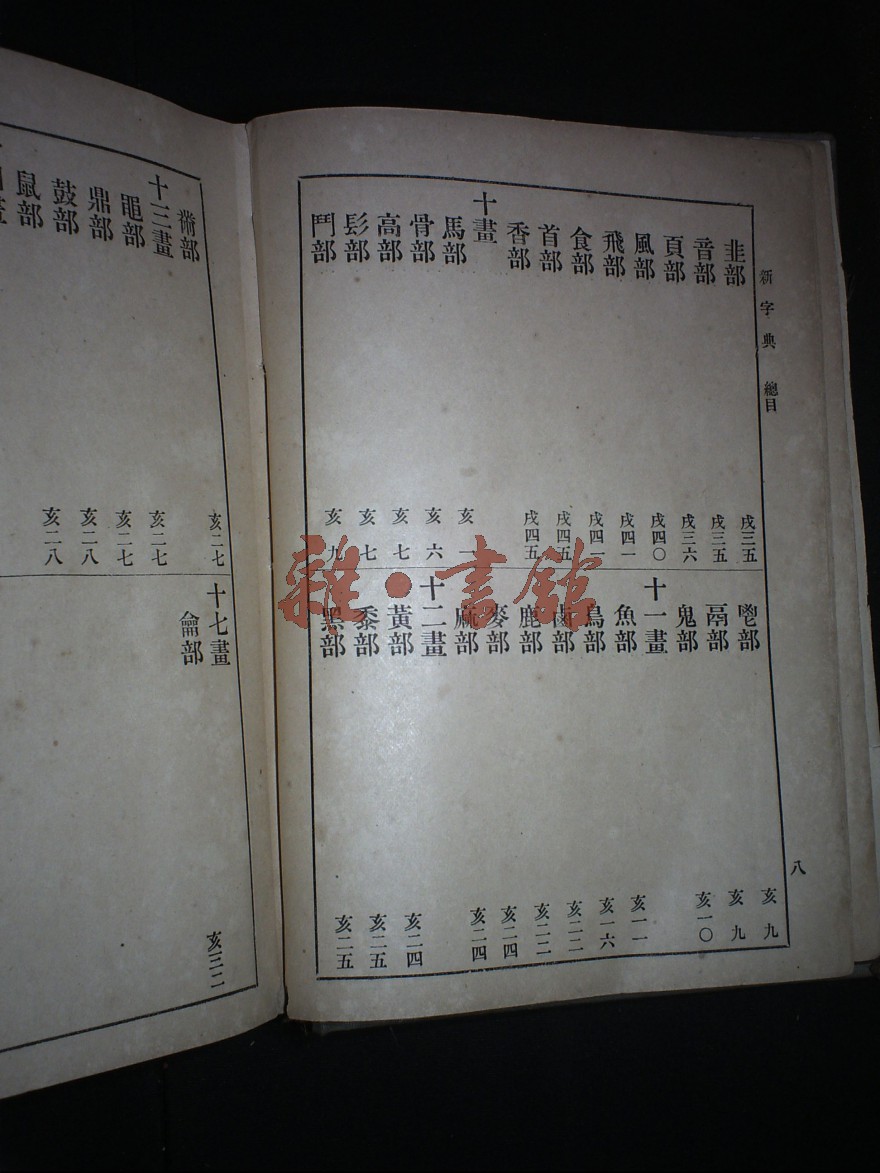 新字典 總目 八
韭部 戌三五
音部 戌三五
頁部 戌三六
風部 戌四〇
飛部 戌四一
食部 戌四一
首部 戌四五
香部 戌四五
十畫
馬部 亥一
骨部 亥六
高部 亥七
髟部 亥七
鬥部 亥九
鬯部 亥九
鬲部 亥九
鬼部 亥一〇
十一畫
魚部 亥一一
鳥部 亥一六
鹵部 亥二二
鹿部 亥二二
麥部 亥二四
麻部 亥二四
十二畫
黃部 亥二四
黍部 亥二五
黑部 亥二五
黹部 亥二七
十三畫
黽部 亥二七
鼎部 亥二七
鼓部 亥二八
鼠部 亥二八
十七畫
龠部 亥三二
雜·書館